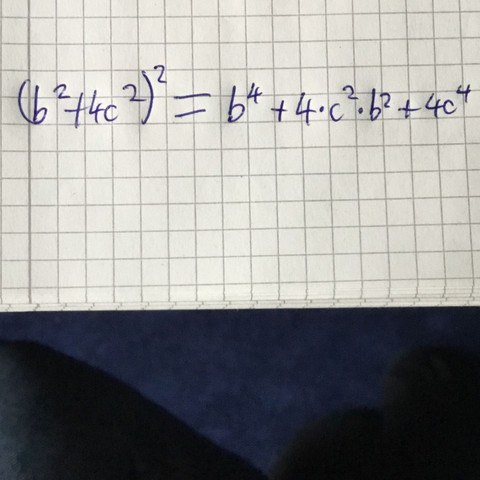 (b²+4c²)² = b⁴ + 4·c²·b² + 4c⁴